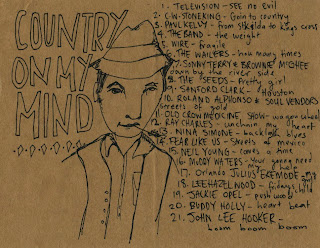 COUNTRY
ON MY
MIND
1. TELEVISION - see no evil
2. C.W. STONEKING - Goin to country
3. PAUL KELLY - from st Kilda to Kings cross
4. THE BAND - the weight
5. WIRE - fragile
6. THE WAILERS - how many times
7. SONNY TERRY & BROWNIE McGHEE
down by the river side
8. THE SEEDS - Pretty girl
9. SANFORD CLARK - Houston
10. ROLAND ALPHONSO & SOUL VENDORS
streets of gold
OLD CROW MEDICINE SHOW - wagon wheel
12. RAY CHARLES - unchain my heart
13. NINA SIMONE - backlash blues
14. FEAR LIKE US - Streets
15. NEIL YOUNG - comes a time
16. MUDDY WATERS - Your gonna need
my help
17. ORLANDO JULIUS
18. LEE HAZELWOOD -
19. JACKIE OPEL - push wood
20. BUDDY HOLLY - heart beat
21. JOHN LEE HOOKER -
boom boom boom